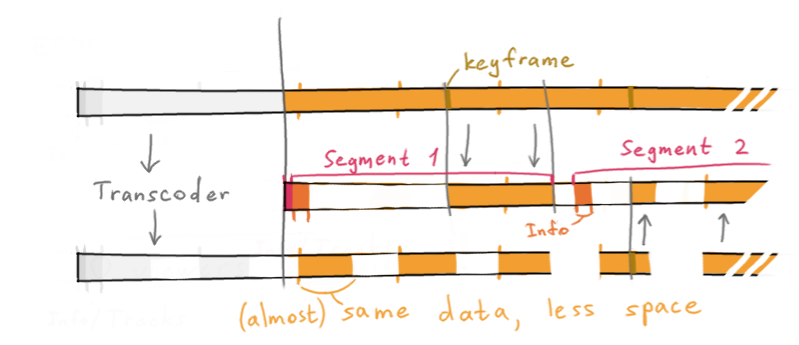 keyframe
Segment 1
Segment 2
Transcoder
Info
(almost) same data, less space
Info/Tracks